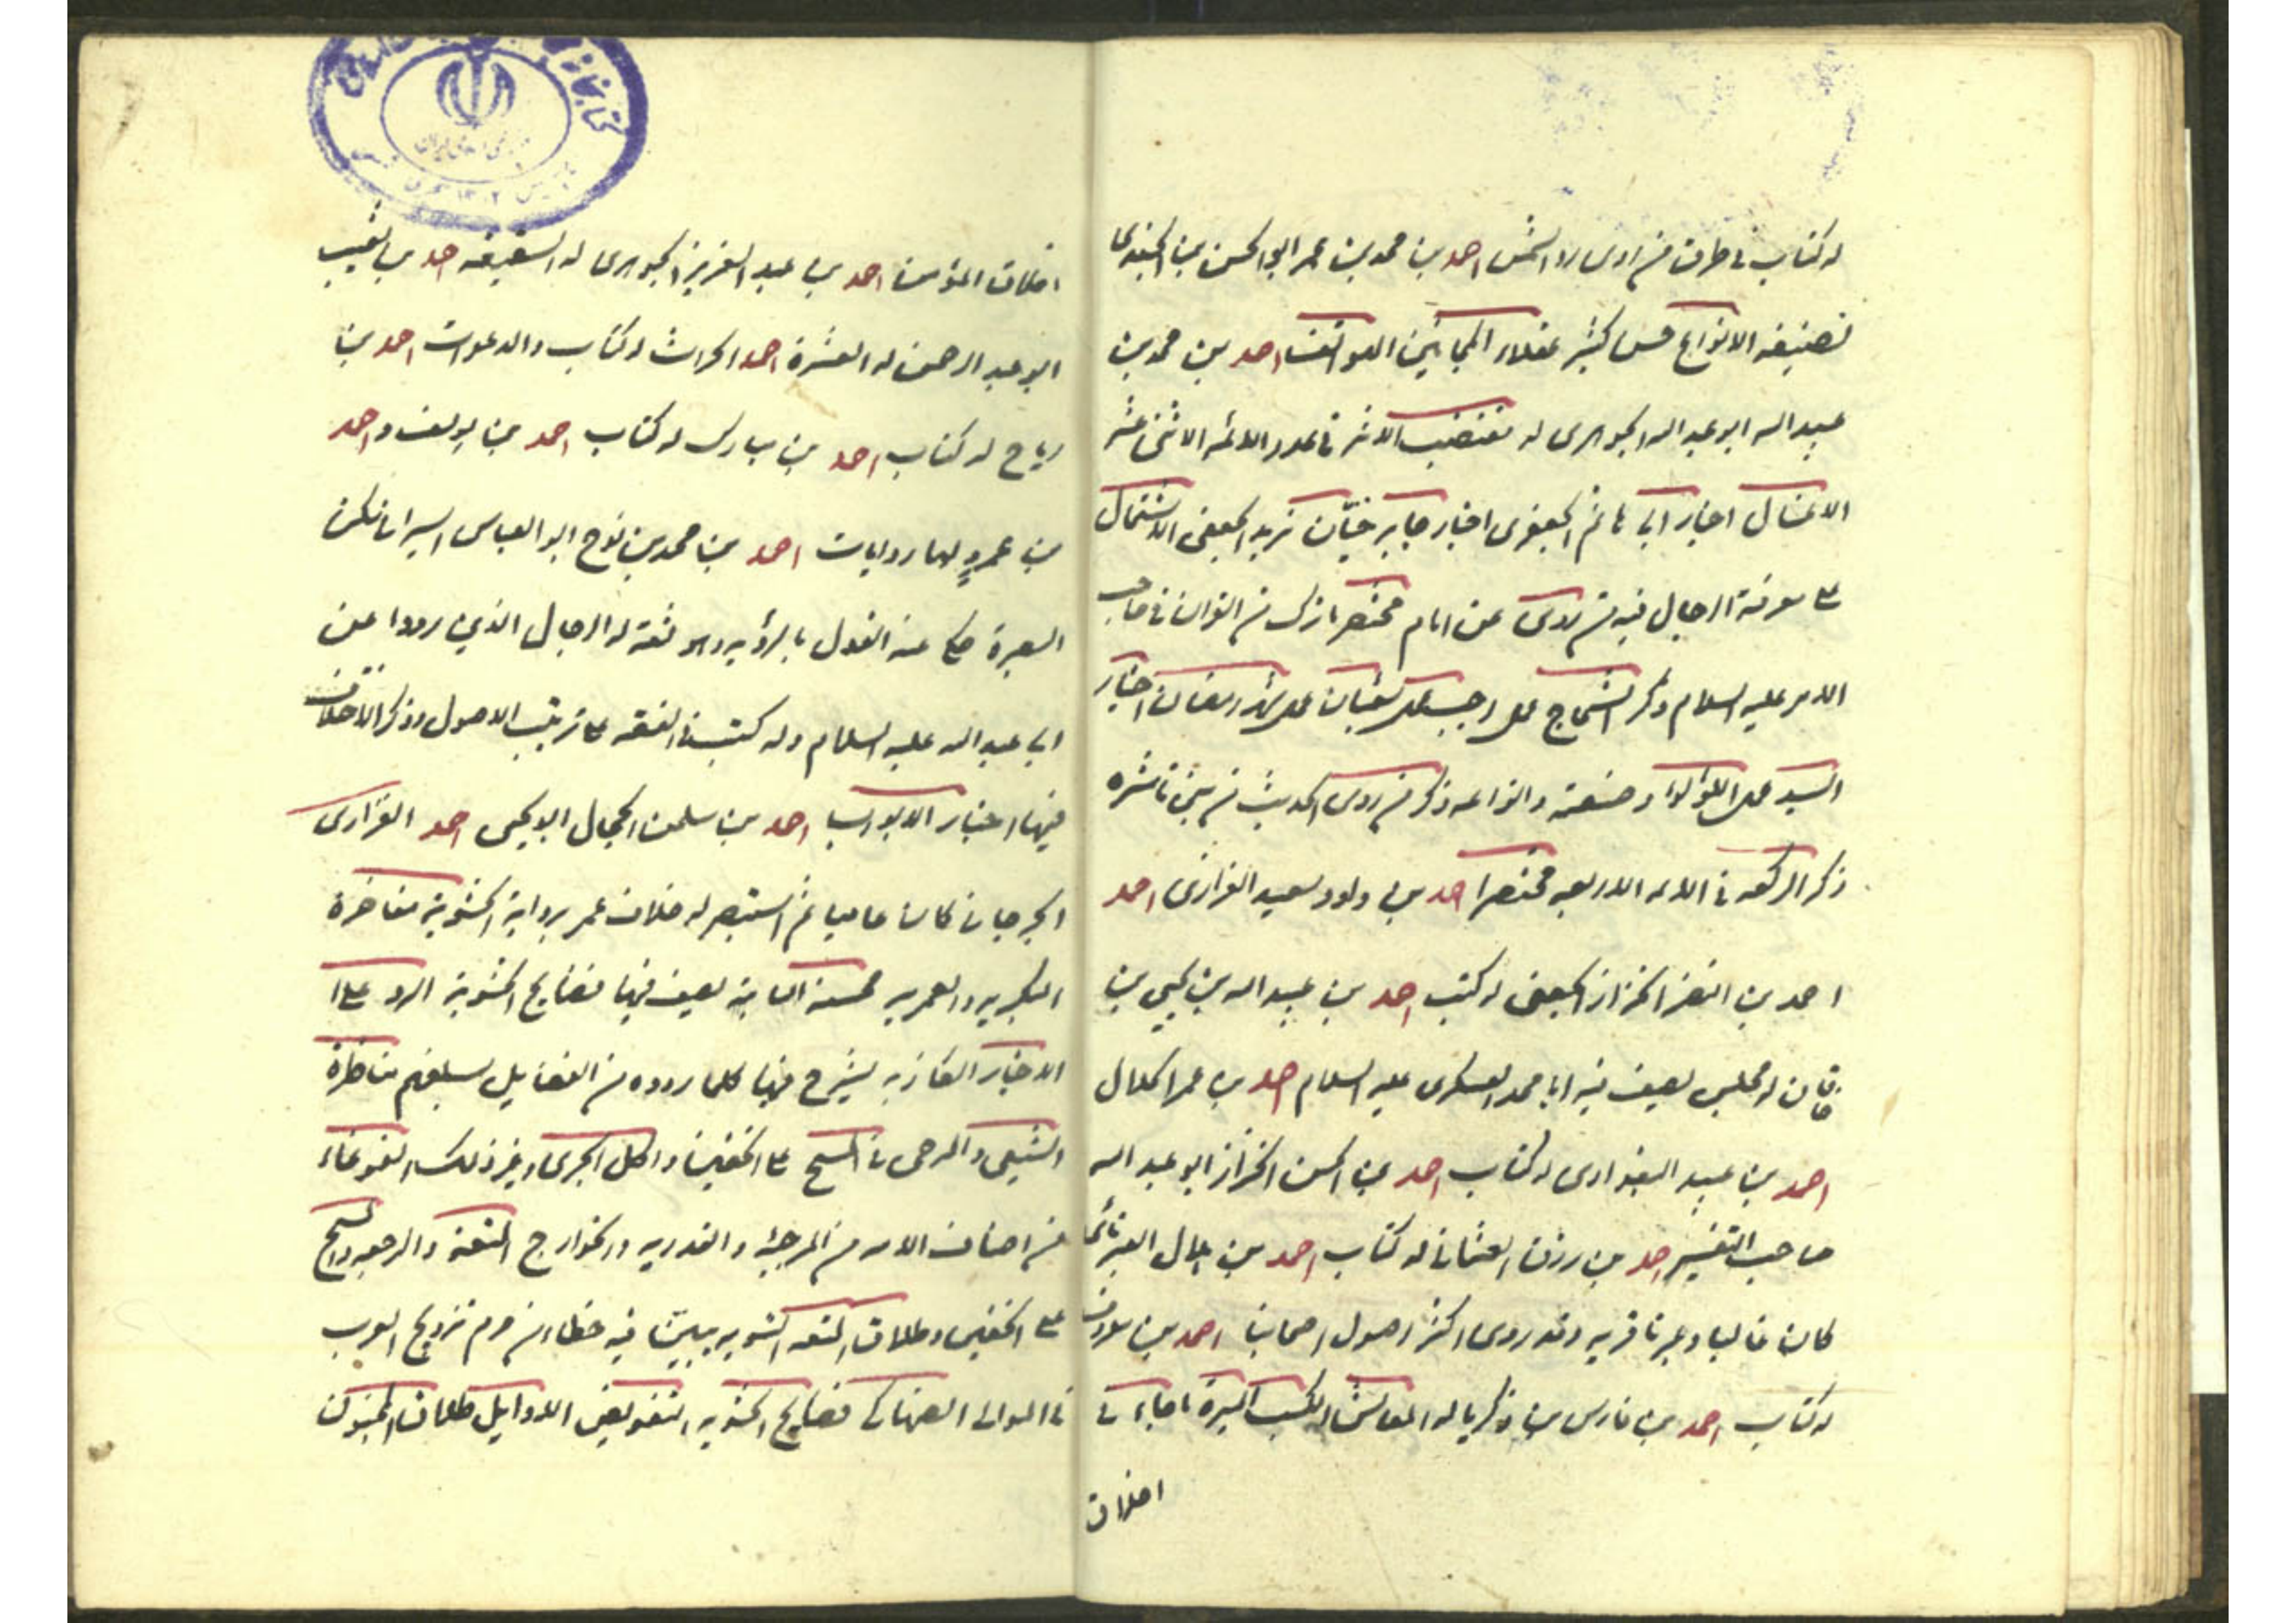 له كتاب في طرق من روى رد الشمس احمد بن محمد بن عمر ابو الحسن بن الجندى
تصنيفه الانواع حسن كثير عقلاء المجانين الهواتف احمد بن محمد بن
عبيد اله ابو عبد اله الجوهرى له مقتضب الاثر في عدد الائمه الاثنى عشر
الاغسال اخبار ابى هاشم الجعفرى اخبار جابر الجعفى الاشتمال
على معرفة الرجال فيه من روى عن امام مختصر ما نزل من القران في صاحب
الامر عليه السلام ذكر الشجاج عمل رجب عمل شعبان عمل شهر رمضان اخبار
السيد عمل اللؤلؤ وصنعته وانواعه ذكر من روى الحديث من بنى ناشره
ذكر الى في الائمه الاربعه مختصرا احمد بن داود سعيد الفزارى احمد
احمد بن النضر الخزاز الجعفى له كتب احمد بن عبيد اله بن يحيى بن
خاقان له مجلس يصف فيه ابا محمد العسكرى عليه السلام احمد بن عمر الحلال
احمد بن عبيد البغدادى له كتاب احمد بن الحسن الخزاز ابو عبد اله
صاحب التفسير احمد بن رزق الغمشانى له كتاب احمد بن هلال العبرتائى
كان غاليا وعبرتا قريه وقد روى اكثر اصول اصحابنا احمد بن
له كتاب احمد بن فارس بن زكريا له المعاش والكسب الميرة ما جاء في
اخلاق
اخلاق المؤمن احمد بن عبد العزيز الجوهرى له السقيفه احمد بن شعيب
ابو عبد الرحمن له العشرة احمد له كتاب والدعوات احمد بن
رباح له كتاب احمد بن مبارك له كتاب احمد بن يوسف واحمد
بن عمرو لهما روايات احمد بن محمد بن نوح ابو العباس السيرافى سكن
البصرة حكى عنه القول بالرؤيه وهو ثقة له الرجال الذين رووا عن
ابى عبد اله عليه السلام وله كتب في الفقه على ترتيب الاصول وذكر الاختلاف
فيها اخبار الابواب احمد بن سلمن الحجال ابو يحيى احمد الفزارى
الجرجانى كان عاميا ثم استبصر له خلاف عمر برواية الحشوية مفاخرة
البكريه والعمريه النابته يصف فيها فضايح الحشوية الرد على
الاخبار الكاذبه يشرح فيها كلما رووه من الفضايل لسلفهم مناظرة
الشيعى والمرجى في المسح على الخفين واكل الجرى وغير ذلك الغوغاء
من اصناف الامه من المرجئه والقدريه والخوارج المتعة والرجعه والمسح
على الخفين وطلاق المتعه التسويه يبين فيه خطاء من حرم تزويج العرب
في الموالى الصهاكى فضايح الحشويه التفويض الاوايل طلاق المجنون